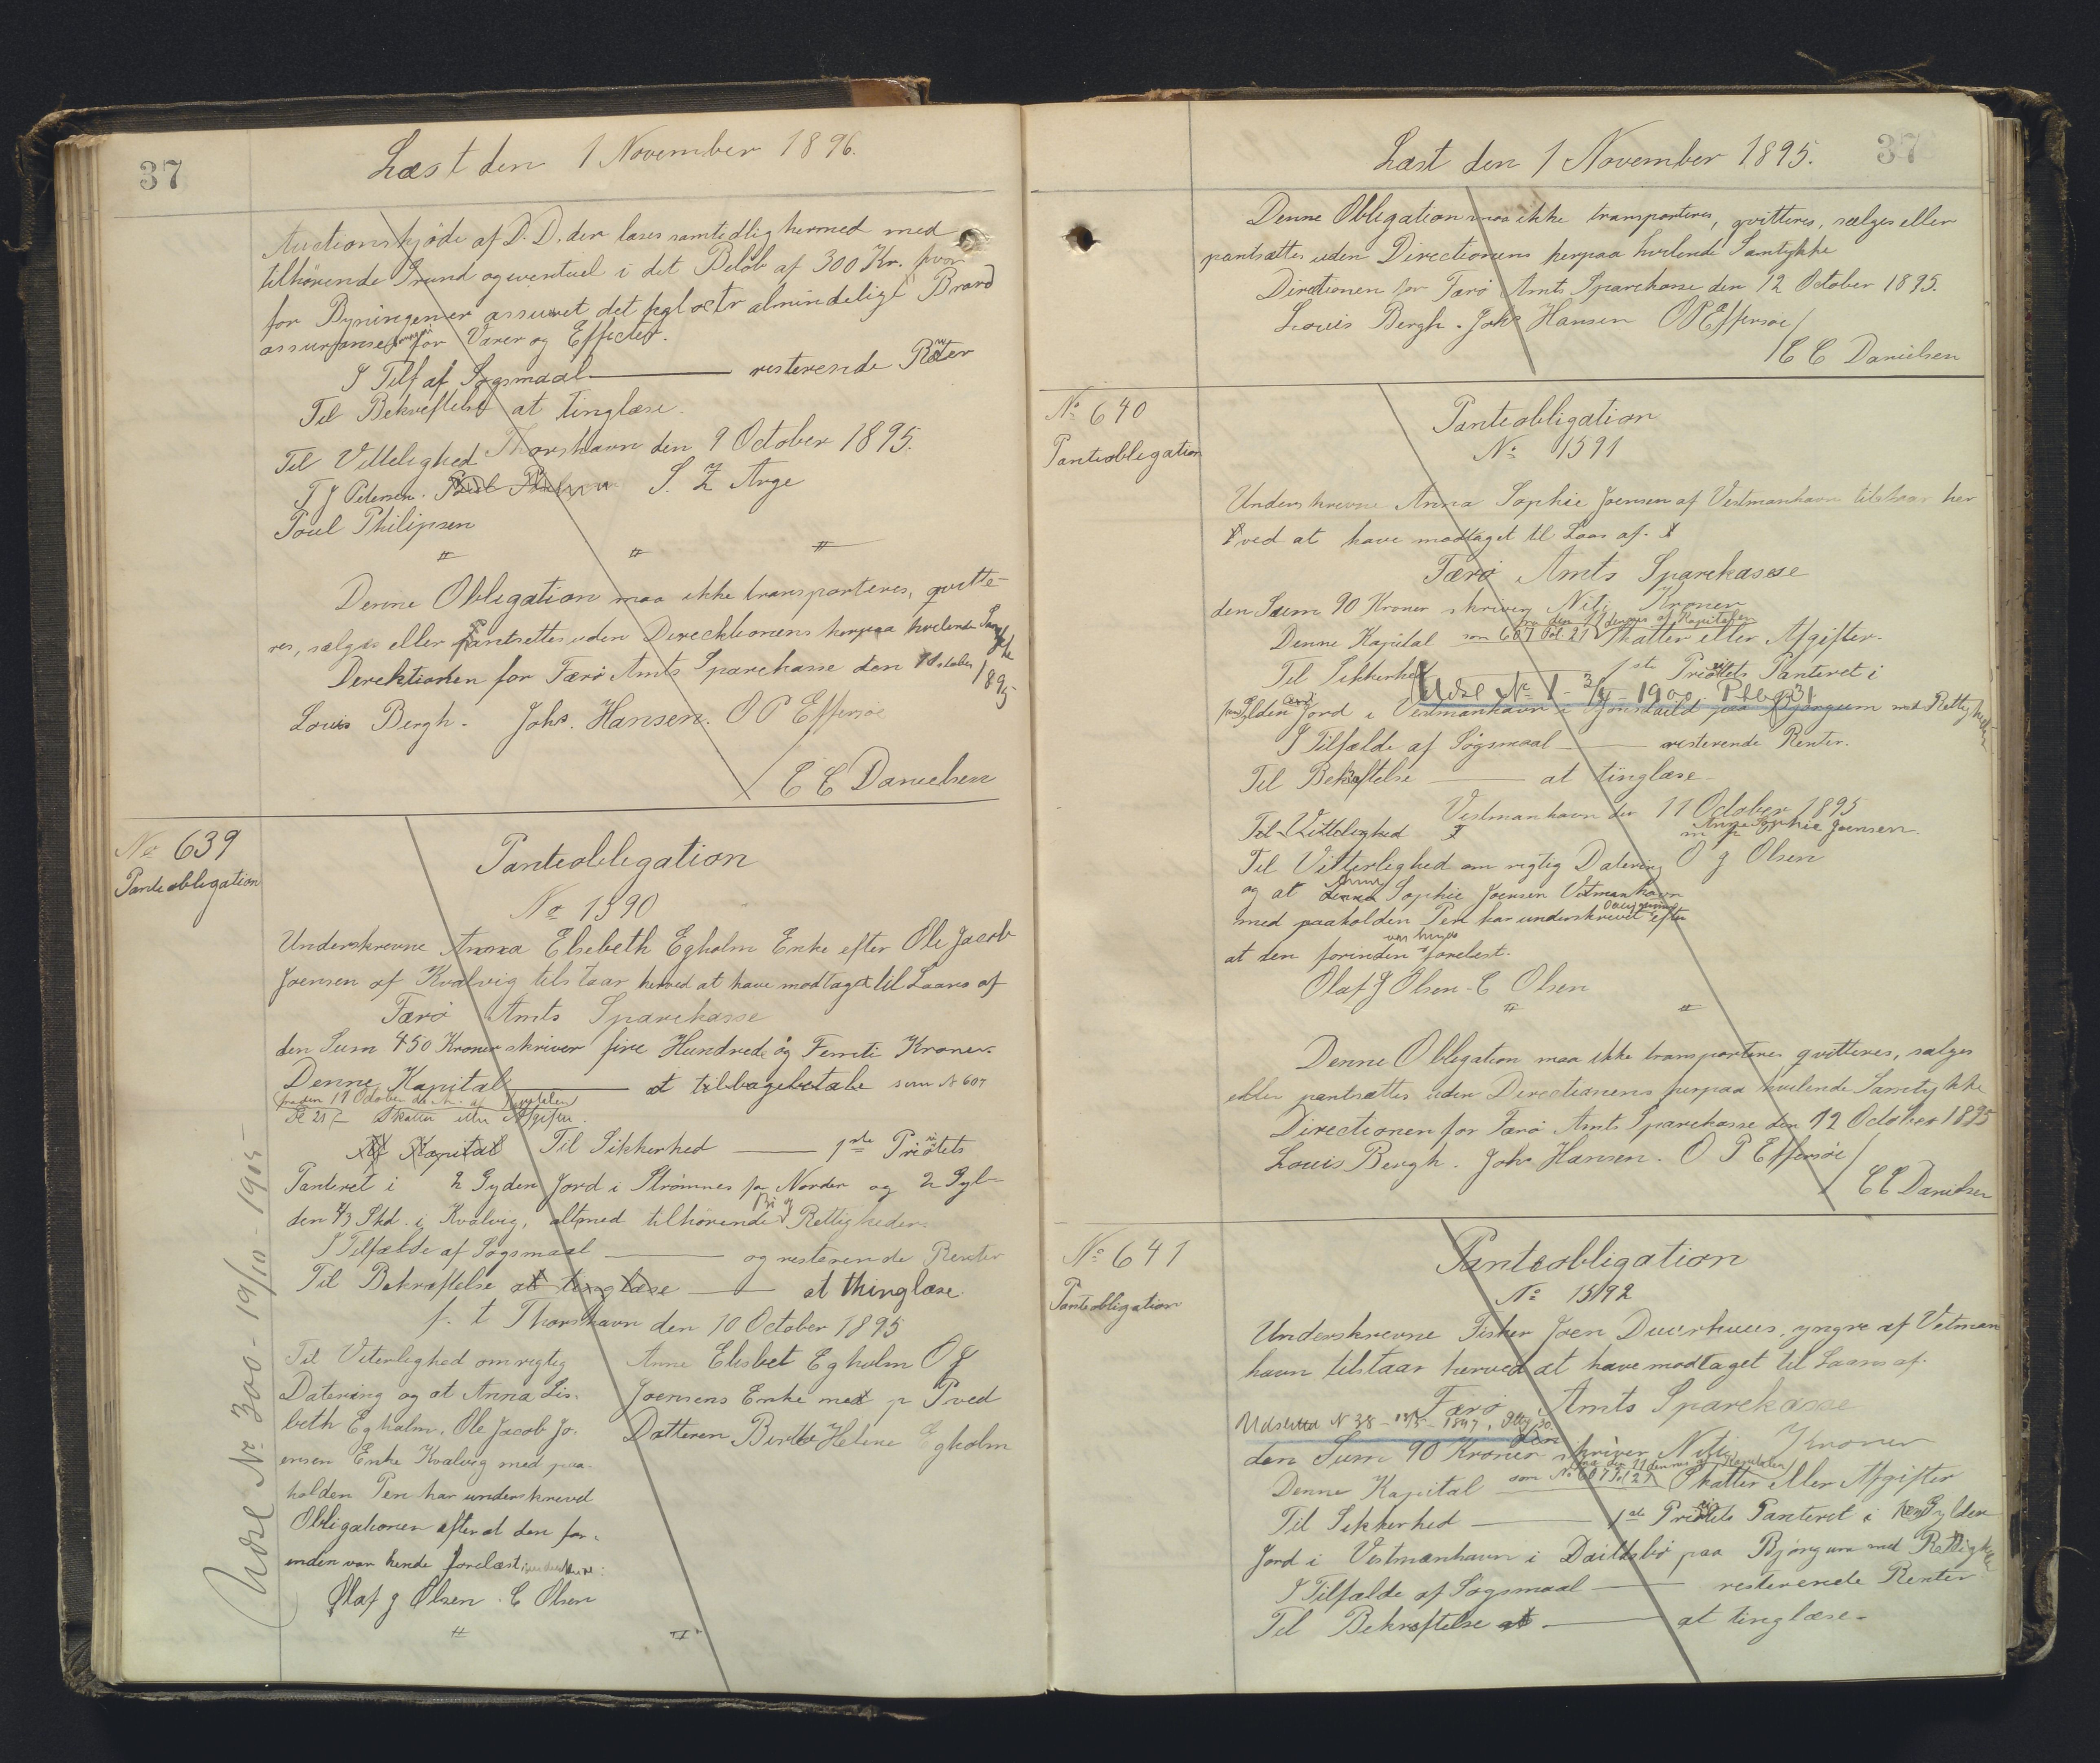 37
Læst den 1 November 1896.
Auctionskjöde af D. D. der læses samtidlig hermed med
tilhörende Grund og eventuel i det Belöb af 300 Kr. hvor
for Byningen er assuret det kgl octr almindelige Brand
assurance for Varer og Effecter.
I Tilf af Søgsmaal — resterende Renter
Til Bekræftelse at tinglæse.
Thorshavn den 9 October 1895.
Til Vittelighed
F J Petersen. S. Z Arge
Poul Philipsen
Denne Obligation maa ikke transporteres, qvitte-
res, sælges eller pantsettes uden Direcktionens herpaa hvilende Samtykke
Derektionen for Færö Amts Sparekasse den 1895
Louis Bergh. Johs. Hansen. O P Effersøe
/ E C Danielsen
No 639
Panteobligation
Panteobligation
No 1390
Underskrevne Anna Elsebeth Egholm Enke efter Ole Jacob
Joensen af Kvalvig tilstaar herved at have modtaget til Laans af
Færö Amts Sparekasse
den Sum 450 Kroner skriver fire Hundrede og Femti Kroner.
Denne Kapital — at tilbagebetale som N 607
fra den 11 October d. A. af Kapitalen
Pl 21 — Skatter eller Afgifter.
Af Kapital Til Sikkerhed — 1ste Prioritets
Panteret i 2 Gylden Jord i Strömnes for Norden og 2 Gyl-
den 4/3 Skd. i Kvalvig, alt med tilhörende Rettigheder.
I Tilfælde af Søgsmaal — og resterende Renter
Til Bekræftelse at tinglæse — at thinglæse.
p. t Thorshavn den 10 October 1895
Til Viterlighed om rigtig Anne Elisbet Egholm O J
Datering og at Anna Lis- Joensens Enke med p P ved
beth Egholm, Ole Jacob Jo- Datteren Birtte Helene Egholm
ensen Enke Kvalvig med paa-
holden Pen har underskrevet
Obligationen efter at den for-
enden var hende forelæst
Olaf J Olsen. C Olsen
Udsl Nr 300 - 19/10 - 1905 -
37
Læst den 1 November 1895.
Denne Obligation maa ikke transporteres, qvitteres, sælges eller
pantsættes uden Directionens herpaa hvilende Samtykke
Directionen for Færö Amts Sparekasse den 12 October 1895.
Louis Bergh. Johs Hansen O P Effersøe /
/ E C Danielsen
No 640
Panteobligation
Panteobligation
No 1391
Underskrevne Anna Sophie Joensen af Vestmanhavn tilstaar her
ved at have modtaget til Laan af.
Færö Amts Sparekasse
den Sum 90 Kroner skriver Niti Kroner
fra den 11 dennes af Kapitalen
Denne Kapital som 607 Pol 21 Skatter eller Afgifter.
Til Sikkerhed 1ste Prioritets Panteret i
Udsl No 1 - 3/1 - 1900
Gylden Jord i Vestmanhavn i paa Bjorgum med Rettigheder
I Tilfælde af Søgsmaal — resterende Renter.
Til Bekræftelse — at tinglæse -
Vestmanhavn den 11 October 1895
Til Vittelighed Anna Sophie Joensen.
m p
Til Vitterlighed om rigtig Datering O J Olsen
og at Anna Sophie Joensen Vestmanhavn
med paaholden Pen har underskrevet efter
at den forinden var hende forelæst.
Olaf J Olsen - C Olsen
Denne Obligation maa ikke transporteres qvitteres, sælges
eller pantsættes uden Directionens herpaa hvilende Samtykke
Directionen for Færö Amts Sparekasse den 12 October 1895
Louis Bergh. Johs Hansen. O P Effersøe /
/ E C Danielsen
No 641
Panteobligation
Panteobligation
No 1392
Underskrevne Fisker Joen Duurhuus, yngre af Vetman
havn tilstaar herved at have modtaget til Laans af.
Færö Amts Sparekasse
Udslettet N 38 - 1897.
den Sum 90 Kroner skriver Niti Kroner
fra den 11 dennes af Kapitalen
Denne Kapital som No 607 Fol 21 Skatter eller Afgifter
Til Sikkerhed — 1ste Prioritets Panteret i en Gylden
Jord i Vestmanhavn i paa Bjørgum med Rettigheder
I Tilfælde af Søgsmaal — resterende Renter
Til Bekræftelse at — at tinglæse -